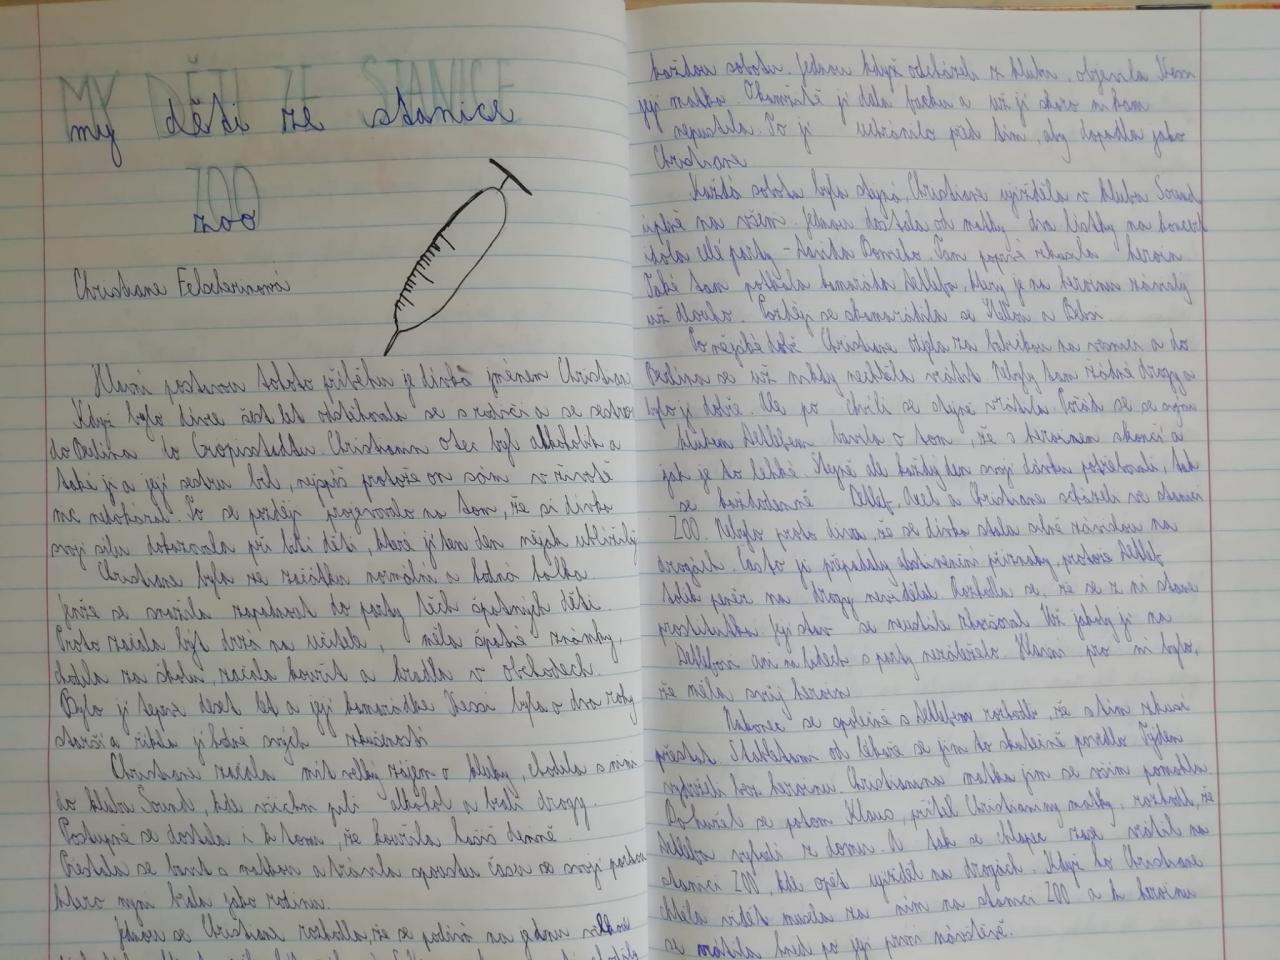 MY DĚTI ZE STANICE
my děti ze stanice
ZOO
zoo
Christiane Felscherinová
Hlavní postavou tohoto příběhu je dívka jménem Christiane
Když bylo dívce šest let odstěhovala se s rodiči a se sestrou
do Berlína do Gropiusstadtu. Christianin otec byl alkoholik a
také ji a její sestru bil, nejspíš protože on sám v životě
nic nedokázal. To se později projevovalo na tom, že si dívka
svoji sílu dokazovala při bití dětí, které jí ten den nějak ublížily
Christiane byla ze začátku normální a hodná holka.
Jenže se snažila zapadnout do party těch špatných dětí.
Proto začala být drzá na učitele, měla špatné známky,
chodila za školu, začala kouřit a kradla v obchodech.
Bylo jí teprve deset let a její kamarádka Kessi byla o dva roky
starší a říkla jí hodně svých zkušeností
Christiane začala mít velký zájem o kluky, chodila s nimi
do klubu Sound, kde všichni pili alkohol a brali drogy.
Postupně se dostala i k tomu, že kouřila hašiš denně.
Přestala se bavit s matkou a trávila spoustu času se svojí partou
kterou nyní brala jako rodinu.
Jednou se Christiane rozhodla, že se podívá na jednu
každou sobotu. Jednou když odcházeli z klubu, objevila Kessi
její matka. Okamžitě jí dala facku a už ji skoro nikam
nepustila. To ji uchránilo před tím, aby dopadla jako
Christiane
Každá sobota byla stejná, Christiane ujížděla v klubu Sound
úplně na všem. Jednou dostala od matky dva lístky na koncert
idola celé party - Davida Bowieho. Tam poprvé zkusila heroin
Také tam potkala kamaráda Detlefa, který je na heroinu závislý
už dlouho. Později se skamarádila se Stellou a Babsi
Po nějaké době Christiane odjela za babičkou na venkov a do
Berlína se už nikdy nechtěla vrátit. Nebyly tam žádné drogy a
bylo jí dobře. Ale po chvíli se stejně vrátila. Pořád se se svým
klukem Detlefem bavila o tom, že s heroinem skončí a
jak je to lehké. Stejně ale každý den svoji dávku potřebovali, tak
se každodenně Detlef, Axel a Christiane scházeli ve stanici
ZOO. Nebylo proto divu, že se dívka stala silně závislou na
drogách. Často ji přepadaly abstinenční příznaky, protože Detlef
tolik peněz na drogy nevydělal. Rozhodla se, že se z ní stane
prostitutka. Její stav se neustále zhoršoval. Už jakoby jí na
Detlefovi ani na lidech s party nezáleželo. Hlavní pro ni bylo,
že měla svůj heroin
Nakonec se společně s Detlefem rozhodli, že s tím zkusí
přestat. S tabletami od lékaře se jim to skutečně povedlo. Týden
vydrželi bez heroinu. Christianina matka jim se vším pomohla.
Bohužel se potom Klaus, přítel Christianiny matky, rozhodl, že
Detlefa vyhodí z domu. A tak se chlapec zase vrátil na
stanici ZOO, kde opět ujížděl na drogách. Když ho Christiane
chtěla vidět musela za ním na stanici ZOO a k heroinu
se vrátila hned po její první návštěvě.